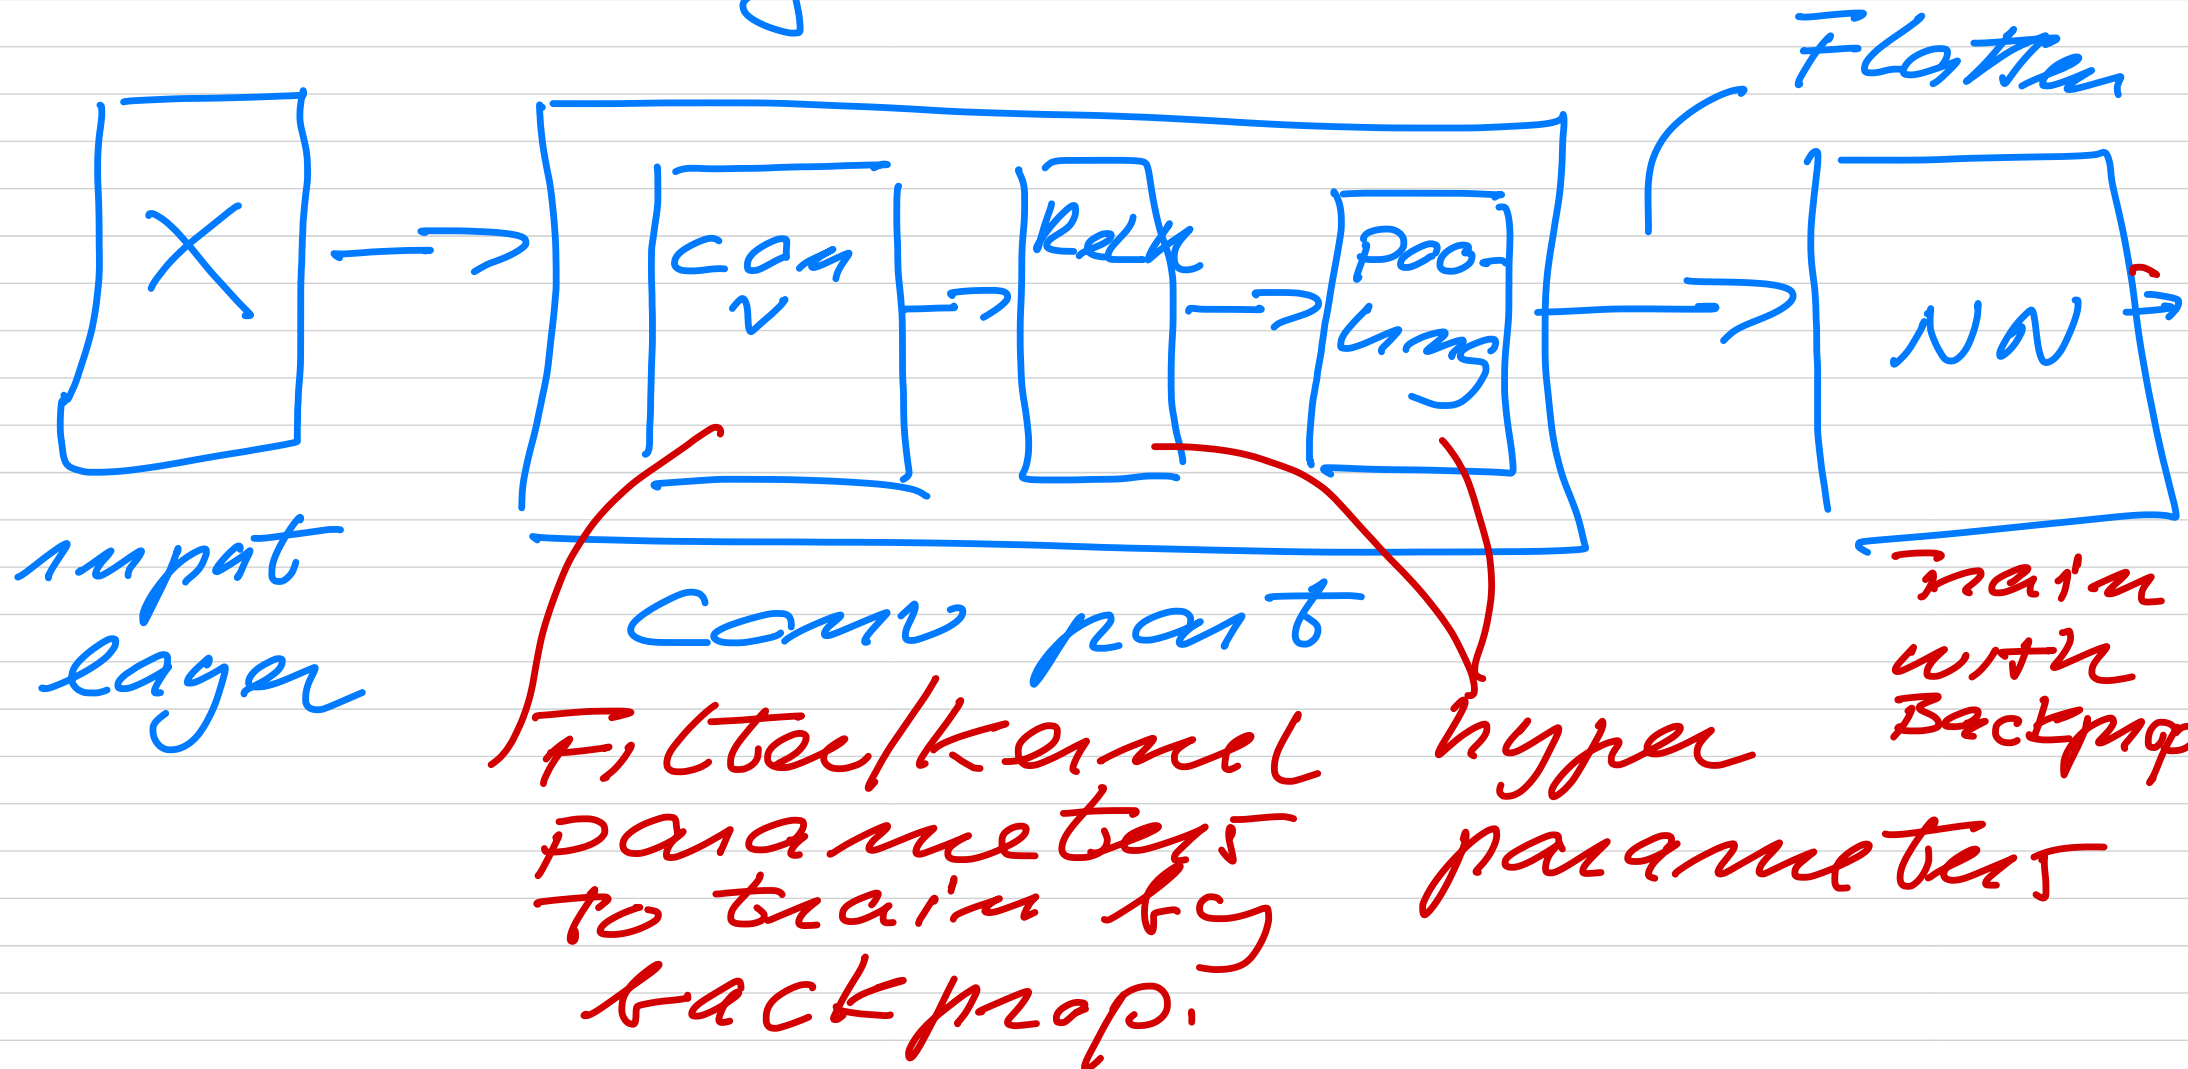 Flatten
X
Con
v
Relu
Poo-
ling
NN
input
layer
Conv part
Train
with
Backprop
Filter/kernel
parameters
to train by
backprop.
hyper
parameters